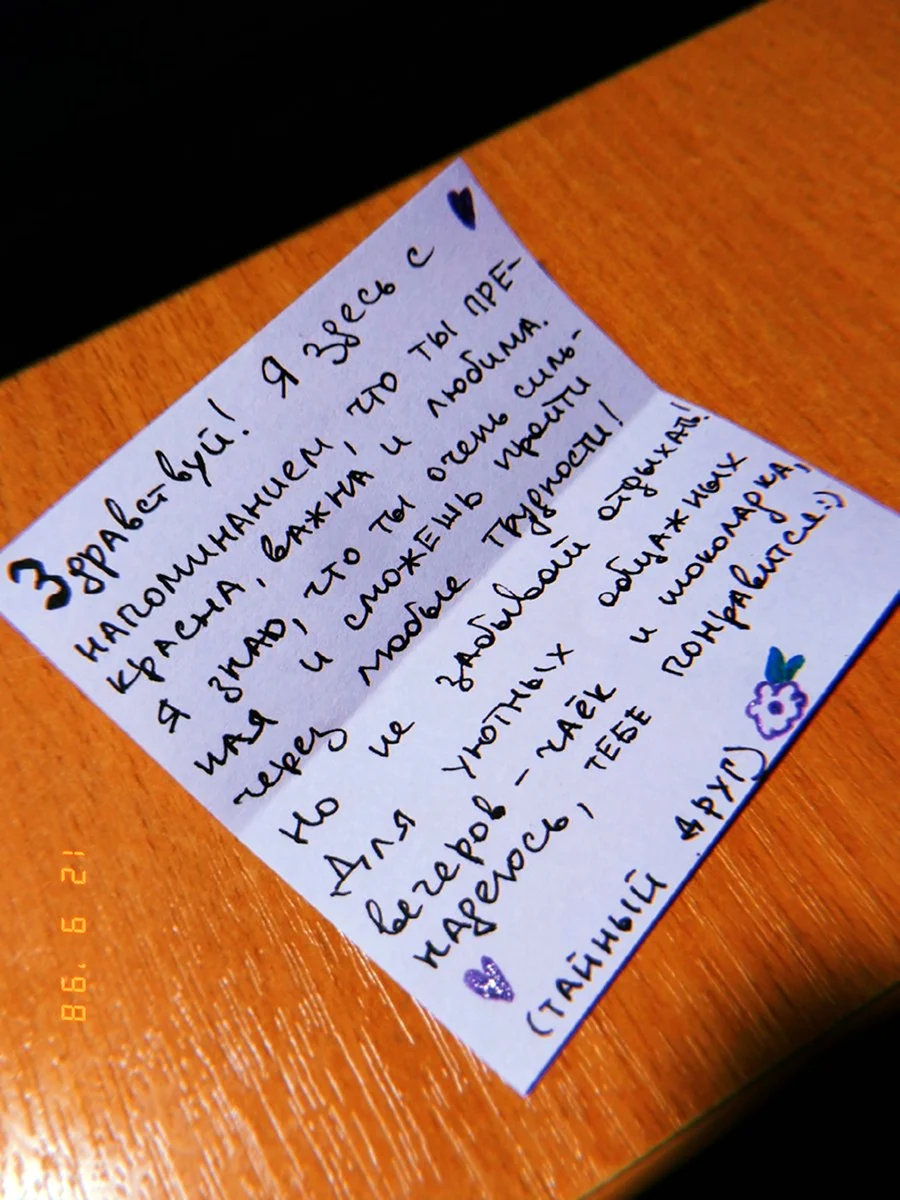 Здравствуй! Я здесь с
напоминанием, что ты пре-
красна, важна и любима.
Я знаю, что ты очень силь-
ная и сможешь пройти
через любые трудности!
Но не забывай отдыхать!
Для уютных общажных
вечеров – чаёк и шоколадка,
надеюсь, тебе понравится:)
(тайный друг)
12 9 '98